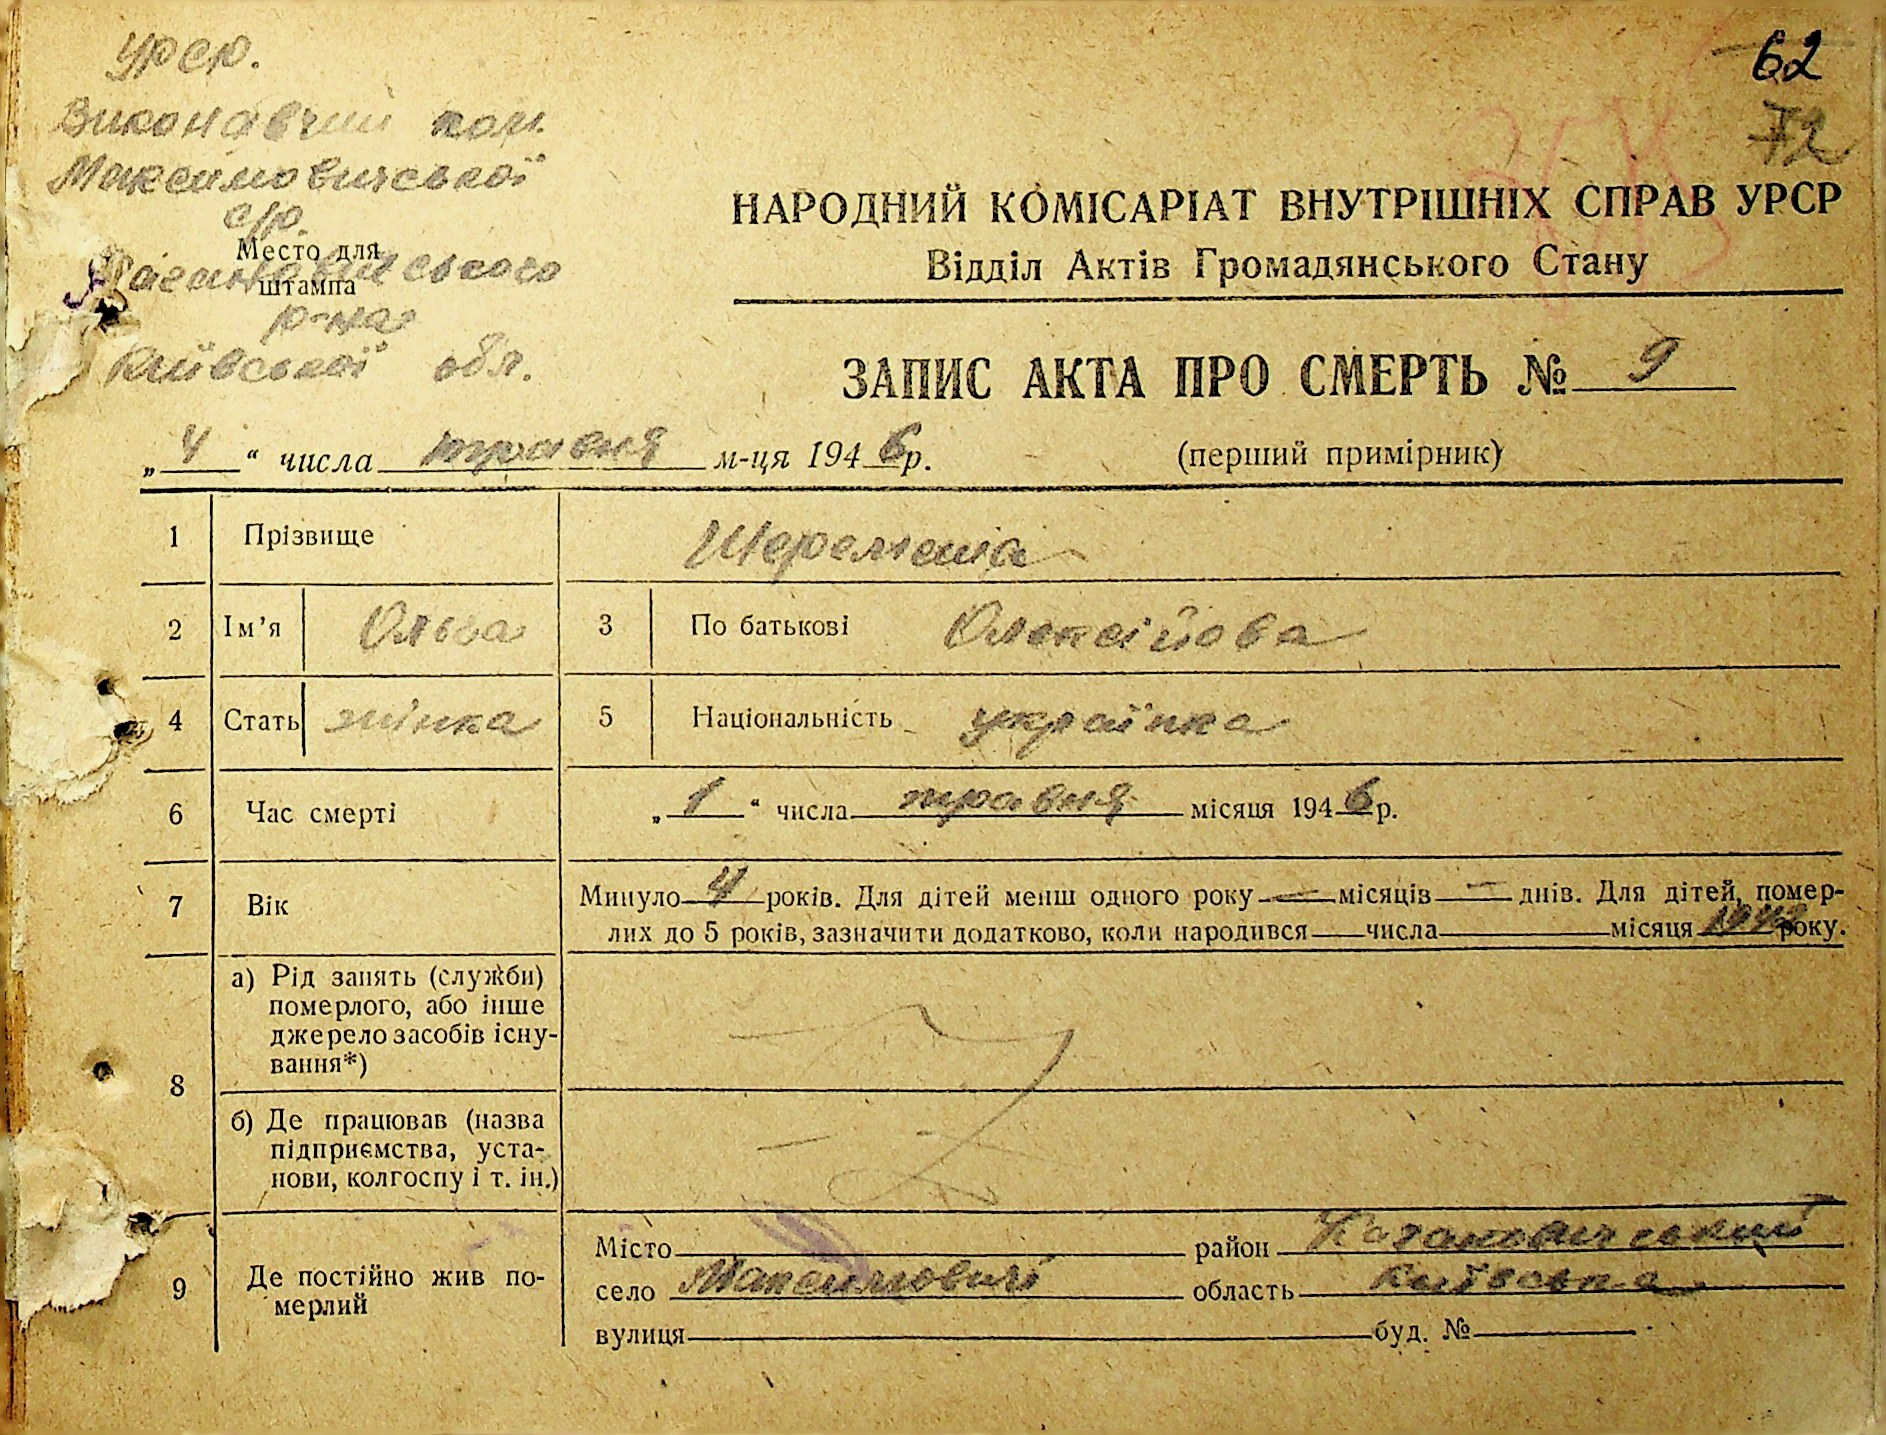 УРСР.
62
72
Виконавчий ком.
Максимовичської
с/р.
Место для
штампа
Кагановичського
р-на
Київської обл.
НАРОДНИЙ КОМІСАРІАТ ВНУТРІШНІХ СПРАВ УРСР
Відділ Актів Громадянського Стану
ЗАПИС АКТА ПРО СМЕРТЬ № 9
„ 4 “ числа травня м-ця 194 6 р. (перший примірник)
1 Прізвище Шеремета
2 Ім’я Ольга 3 По батькові Олексійова
4 Стать жінка 5 Національність українка
6 Час смерті „ 1 “ числа травня місяця 194 6 р.
7 Вік Минуло 4 років. Для дітей менш одного року — місяців — днів. Для дітей, помер-
лих до 5 років, зазначити додатково, коли народився числа місяця 1942 року.
8 а) Рід занять (служби)
померлого, або інше
джерело засобів існу-
вання*)
б) Де працював (назва
підприємства, уста-
нови, колгоспу і т. ін.)
9 Де постійно жив по-
мерлий
Місто район Кагановичський
село Максимовичі область Київська
вулиця буд. №